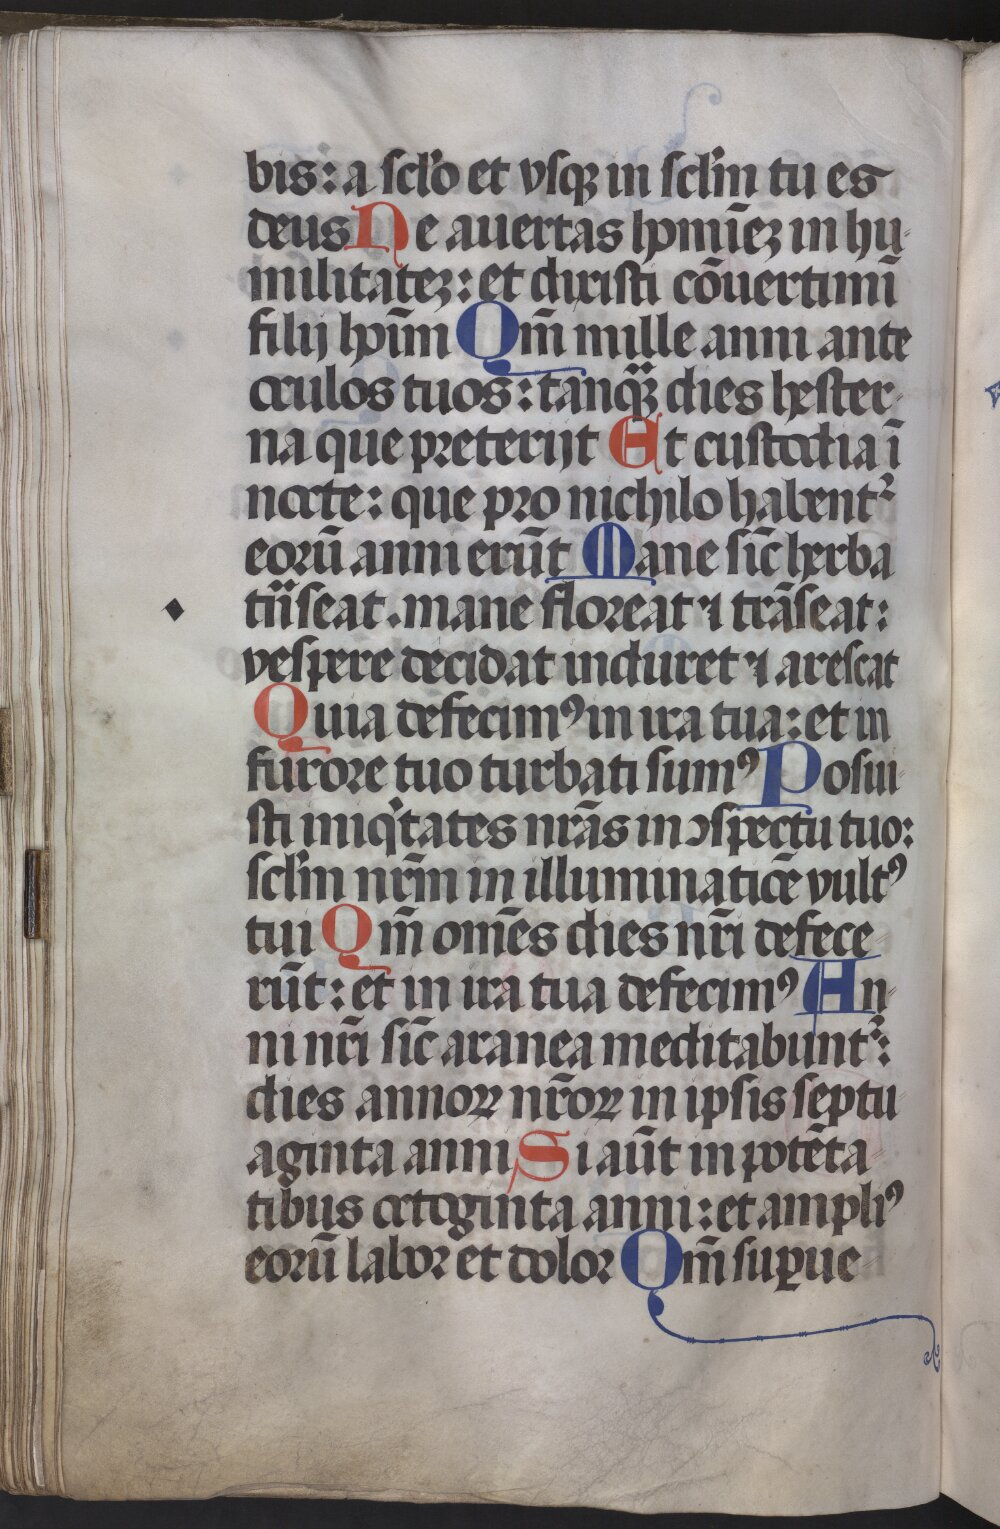 bis: a scl'o et vsqꝫ in scl'm tu es
deus Ne auertas homīeꝫ in hu-
militateꝫ: et dixisti cōuertimī
filij hoīm Qm̄ mille anni ante
oculos tuos: tanqꝫ dies hester-
na que preterijt Et custodia ī
nocte: que pro nichilo habentᷣ
eorū anni erūt Mane sic̄ herba
tn̄seat. mane floreat ⁊ trāseat:
vespere decidat induret ⁊ arescat
Quia defecimꝰ in ira tua: et in
furore tuo turbati sumꝰ Posui-
sti iniqͥtates nr̄as in ↄspectu tuo:
scl'm nr̄m in illuminatiōe vultꝰ
tui Qm̄ omēs dies nr̄i defece-
rūt: et in ira tua defecimꝰ An-
ni nr̄i sic̄ aranea meditabuntᷣ:
dies annoꝝ nr̄oꝝ in ipsis septu-
aginta anni Si aūt in potēta-
tibus octoginta anni: et ampliꝰ
eorū labor et dolor Qm̄ suꝑue